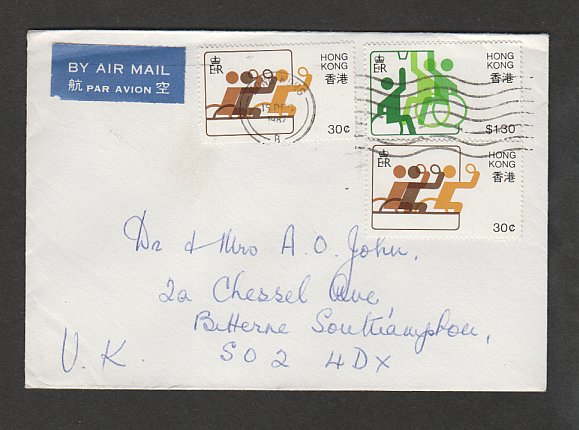 BY AIR MAIL
航 PAR AVION 空
ER
HONG
KONG
香港
30¢
ER
HONG
KONG
香港
$1.30
ER
HONG
KONG
香港
30¢
Dr & Mrs A. O. John,
2a Chessel Ave
Bitterne Southampton,
SO2 4DX
U.K.